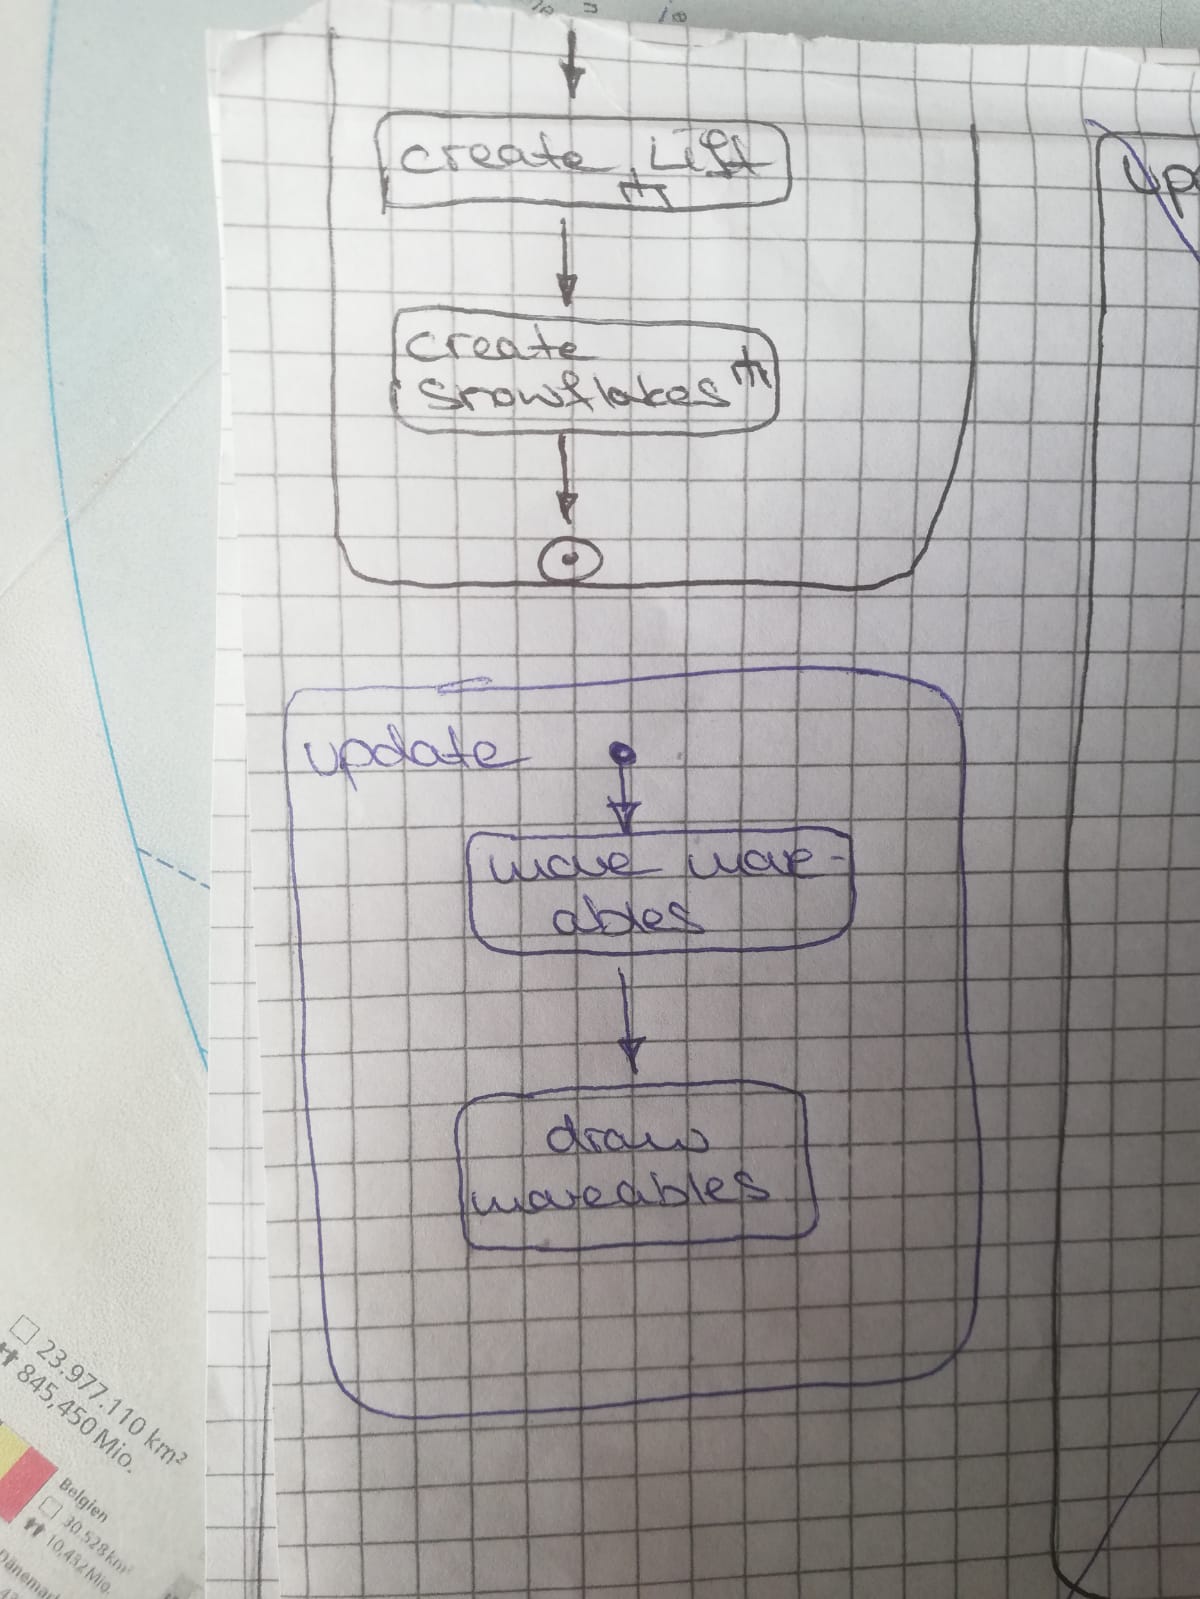 create Lift
create
snowflakes
up
update
move move-
ables
draw
moveables
23.977.110 km²
845,450 Mio.
Belgien
30.528 km²
10,432 Mio.